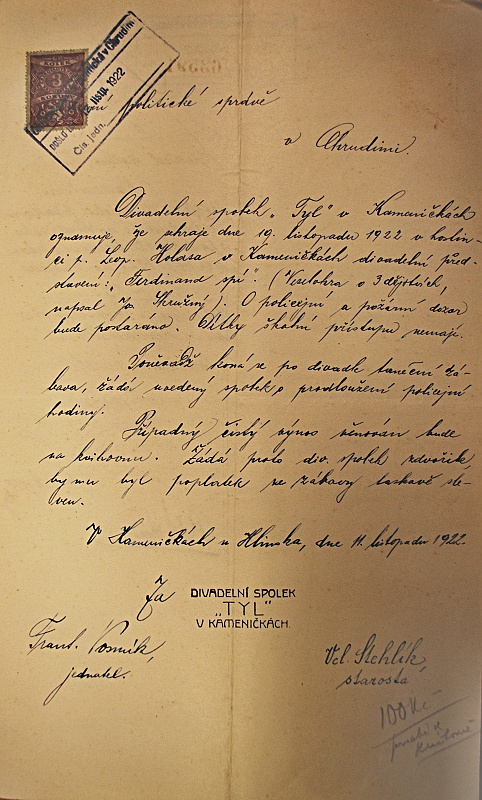 KOLEK
3
listp. 1922
Čís. jedn.
politické správě
v Chrudimi.
Divadelní spolek „Tyl" v Kameničkách
oznamuje, že sehraje dne 19. listopadu 1922 v hostin-
ci p. Leop. Holasa v Kameničkách divadelní před-
stavení: „Ferdinand spí". (Veselohra o 3 dějstvích,
napsal Ja. Skružný). O policejní a požární dozor
bude postaráno. Dítky školní přístupu nemají.
Poněvadž koná se po divadle taneční zá-
bava, žádá uvedený spolek o prodloužení policejní
hodiny.
Případný čistý výnos věnován bude
na knihovnu. Žádá proto div. spolek zdvořile,
by mu byl poplatek ze zábavy laskavě sle-
ven.
V Kameničkách u Hlinska, dne 11. listopadu 1922.
Za DIVADELNÍ SPOLEK
„TYL"
V KAMENIČKÁCH.
Frant.
jednatel.
Vel. Stehlík
starosta
100 Kč